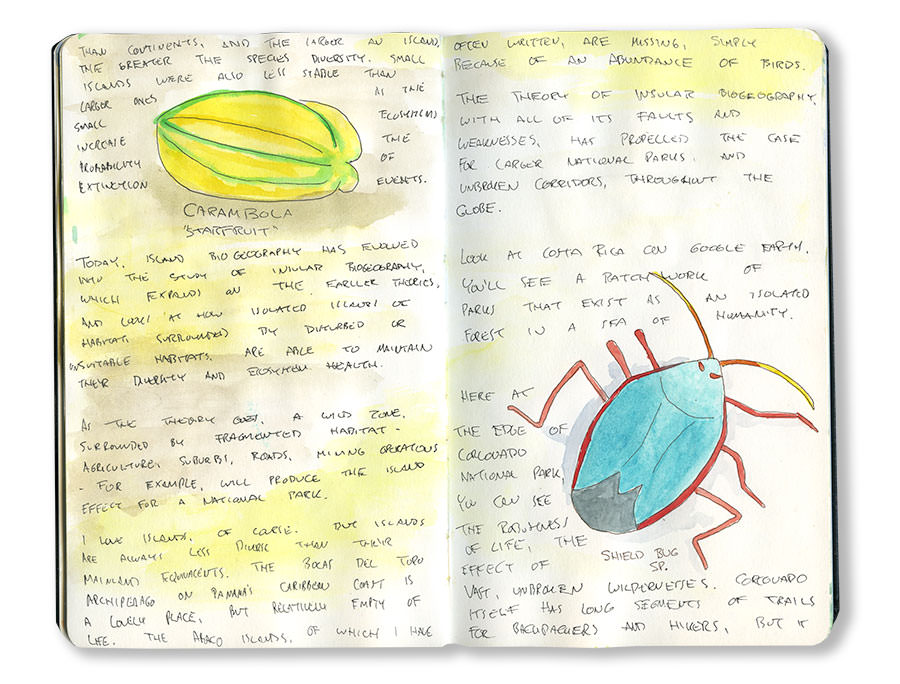 THAN CONTINENTS, AND THE LARGER AN ISLAND,
THE GREATER THE SPECIES DIVERSITY. SMALL
ISLANDS WERE ALSO LESS STABLE THAN
LARGER ONES AS THE
SMALL ECOSYSTEMS
INCREASE THE
PROBABILITY OF
EXTINCTION EVENTS.
CARAMBOLA
"STARFRUIT"
TODAY, ISLAND BIOGEOGRAPHY HAS EVOLVED
INTO THE STUDY OF INSULAR BIOGEOGRAPHY,
WHICH EXPANDS ON THE EARLIER THEORIES,
AND LOOKS AT HOW ISOLATED ISLANDS OF
HABITAT SURROUNDED BY DISTURBED OR
UNSUITABLE HABITATS. ARE ABLE TO MAINTAIN
THEIR DIVERSITY AND ECOSYSTEM HEALTH.
AS THE THEORY GOES, A WILD ZONE,
SURROUNDED BY FRAGMENTED HABITAT -
AGRICULTURE, SUBURBS, ROADS, MINING OPERATIONS
- FOR EXAMPLE, WILL PRODUCE THE ISLAND
EFFECT FOR A NATIONAL PARK.
I LOVE ISLANDS, OF COURSE. BUT ISLANDS
ARE ALWAYS LESS DIVERSE THAN THEIR
MAINLAND EQUIVALENTS. THE BOCAS DEL TORO
ARCHIPELAGO ON PANAMA'S CARIBBEAN COAST IS
A LOVELY PLACE, BUT RELATIVELY EMPTY OF
LIFE. THE ABACO ISLANDS, OF WHICH I HAVE
OFTEN WRITTEN, ARE MISSING, SIMPLY
BECAUSE OF AN ABUNDANCE OF BIRDS.
THE THEORY OF INSULAR BIOGEOGRAPHY,
WITH ALL OF ITS FAULTS AND
WEAKNESSES, HAS PROPELLED THE CASE
FOR LARGER NATIONAL PARKS, AND
UNBROKEN CORRIDORS, THROUGHOUT THE
GLOBE.
LOOK AT COSTA RICA ON GOOGLE EARTH.
YOU'LL SEE A PATCHWORK OF
PARKS THAT EXIST AS AN ISOLATED
FOREST IN A SEA OF HUMANITY.
HERE AT
THE EDGE OF
CORCOVADO
NATIONAL PARK,
YOU CAN SEE
THE ROBUSTNESS
OF LIFE, THE
EFFECT OF
SHIELD BUG
SP.
VAST, UNBROKEN WILDERNESSES. CORCOVADO
ITSELF HAS LONG SEGMENTS OF TRAILS
FOR BACKPACKERS AND HIKERS, BUT IT